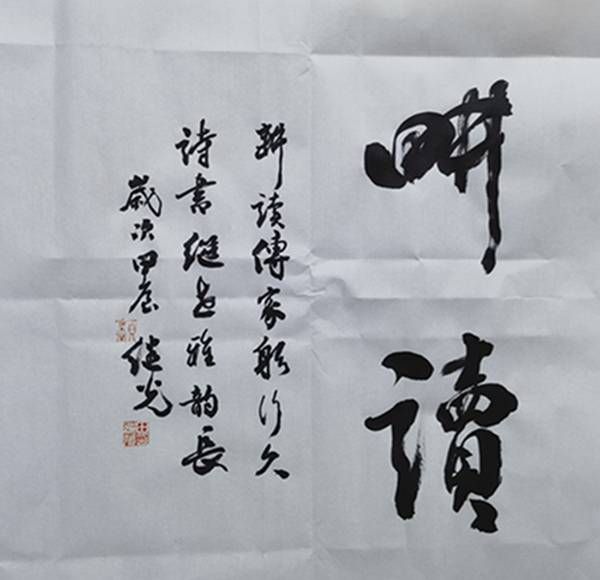 畊讀
耕讀傳家躬行久
詩書继世雅韵長
歲次甲辰
继光